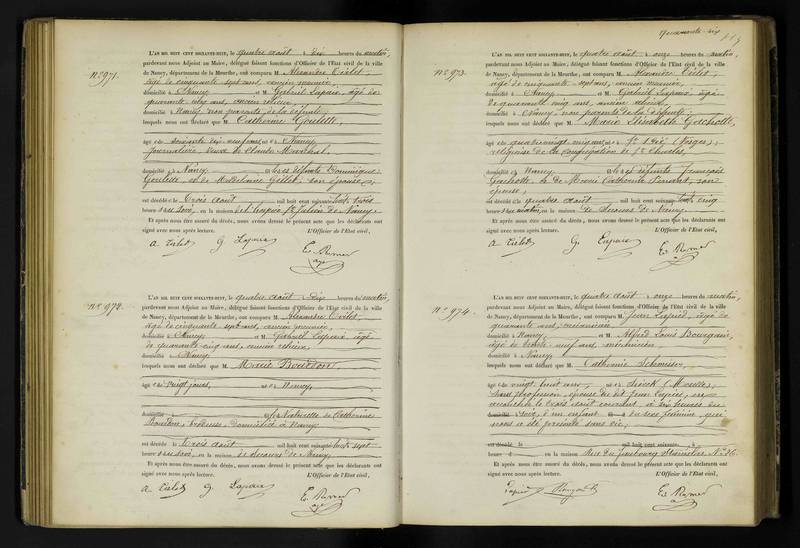 N° 971.
L'AN MIL HUIT CENT SOIXANTE-HUIT, le quatre août à dix heures du matin,
pardevant nous Adjoint au Maire, délégué faisant fonctions d'Officier de l'État civil de la ville
de Nancy, département de la Meurthe, ont comparu M. Alexandre
âgé de cinquante sept ans, ancien
domicilié à Nancy et M. Gabriel Lapaix, âgé de
quarante cinq ans, ancien relieur,
domicilié à Nancy, non parents de la défunte
lesquels nous ont déclaré que M. Catherine Goulette,
âgée de soixante dix neuf ans, née à Nancy
journalière veuve de Claude Marchal,
domiciliée à Nancy fille des défunts Dominique
Goulette et de Madeleine Gillet, son épouse,
est décédée le trois août mil huit cent soixante-huit, à
heures du soir, en la maison de l'hospice St Julien de Nancy.
Et après nous être assuré du décès, nous avons dressé le présent acte que les déclarants ont
signé avec nous après lecture. L'Officier de l'État civil,
G. Lapaix
N° 972.
L'AN MIL HUIT CENT SOIXANTE-HUIT, le quatre août à dix heures du matin,
pardevant nous Adjoint au Maire, délégué faisant fonctions d'Officier de l'État civil de la ville
de Nancy, département de la Meurthe, ont comparu M. Alexandre
âgé de cinquante sept ans, ancien
domicilié à Nancy et M. Gabriel Lapaix, âgé
de quarante cinq ans, ancien relieur,
domicilié à Nancy
lesquels nous ont déclaré que M. Marie Bourdon,
âgée de vingt jours, née à Nancy,
domicilié à fille naturelle de Catherine
Bourdon, brodeuse, domiciliée à Nancy
est décédée le trois août mil huit cent soixante-huit, à sept
heures du soir, en la maison de secours de Nancy.
Et après nous être assuré du décès, nous avons dressé le présent acte que les déclarants ont
signé avec nous après lecture. L'Officier de l'État civil,
G. Lapaix
quarante-six
N° 973.
L'AN MIL HUIT CENT SOIXANTE-HUIT, le quatre août à onze heures du matin,
pardevant nous Adjoint au Maire, délégué faisant fonctions d'Officier de l'État civil de la ville
de Nancy, département de la Meurthe, ont comparu M. Alexandre
âgé de cinquante sept ans, ancien
domicilié à Nancy et M. Gabriel Lapaix, âgé
de quarante cinq ans, ancien relieur,
domicilié à Nancy, non parents de la défunte
lesquels nous ont déclaré que M. Marie Elisabeth Gachotte,
âgée de quatrevingt ans, née à St Dié (Vosges)
religieuse de la congrégation de St Charles,
domiciliée à Nancy fille des défunts François
Gachotte, et de Marie Catherine son
épouse,
est décédée le quatre août mil huit cent soixante-huit, à cinq
heures du matin, en la maison de secours de Nancy
Et après nous être assuré du décès, nous avons dressé le présent acte que les déclarants ont
signé avec nous après lecture. L'Officier de l'État civil,
G. Lapaix
N° 974.
L'AN MIL HUIT CENT SOIXANTE-HUIT, le quatre août à onze heures du matin,
pardevant nous Adjoint au Maire, délégué faisant fonctions d'Officier de l'État civil de la ville
de Nancy, département de la Meurthe, ont comparu M. Jean Lupied, âgé de
quarante ans, mécanicien
domicilié à Nancy et M. Alfred Louis
âgé de trente neuf ans, mécanicien
domicilié à Nancy
lesquels nous ont déclaré que M. Catherine
âgée de vingt huit ans, née à Sierck (Moselle)
sans profession, épouse du dit Jean Lupied, est
accouchée le trois août courant, à dix heures du
soir, d'un enfant du sexe féminin qui
nous a été présenté sans vie,
est décédé le mil huit cent soixante- à
heures d en la maison Rue du faubourg Stanislas N° 36.
Et après nous être assuré du décès, nous avons dressé le présent acte que les déclarants ont
signé avec nous après lecture. L'Officier de l'État civil,